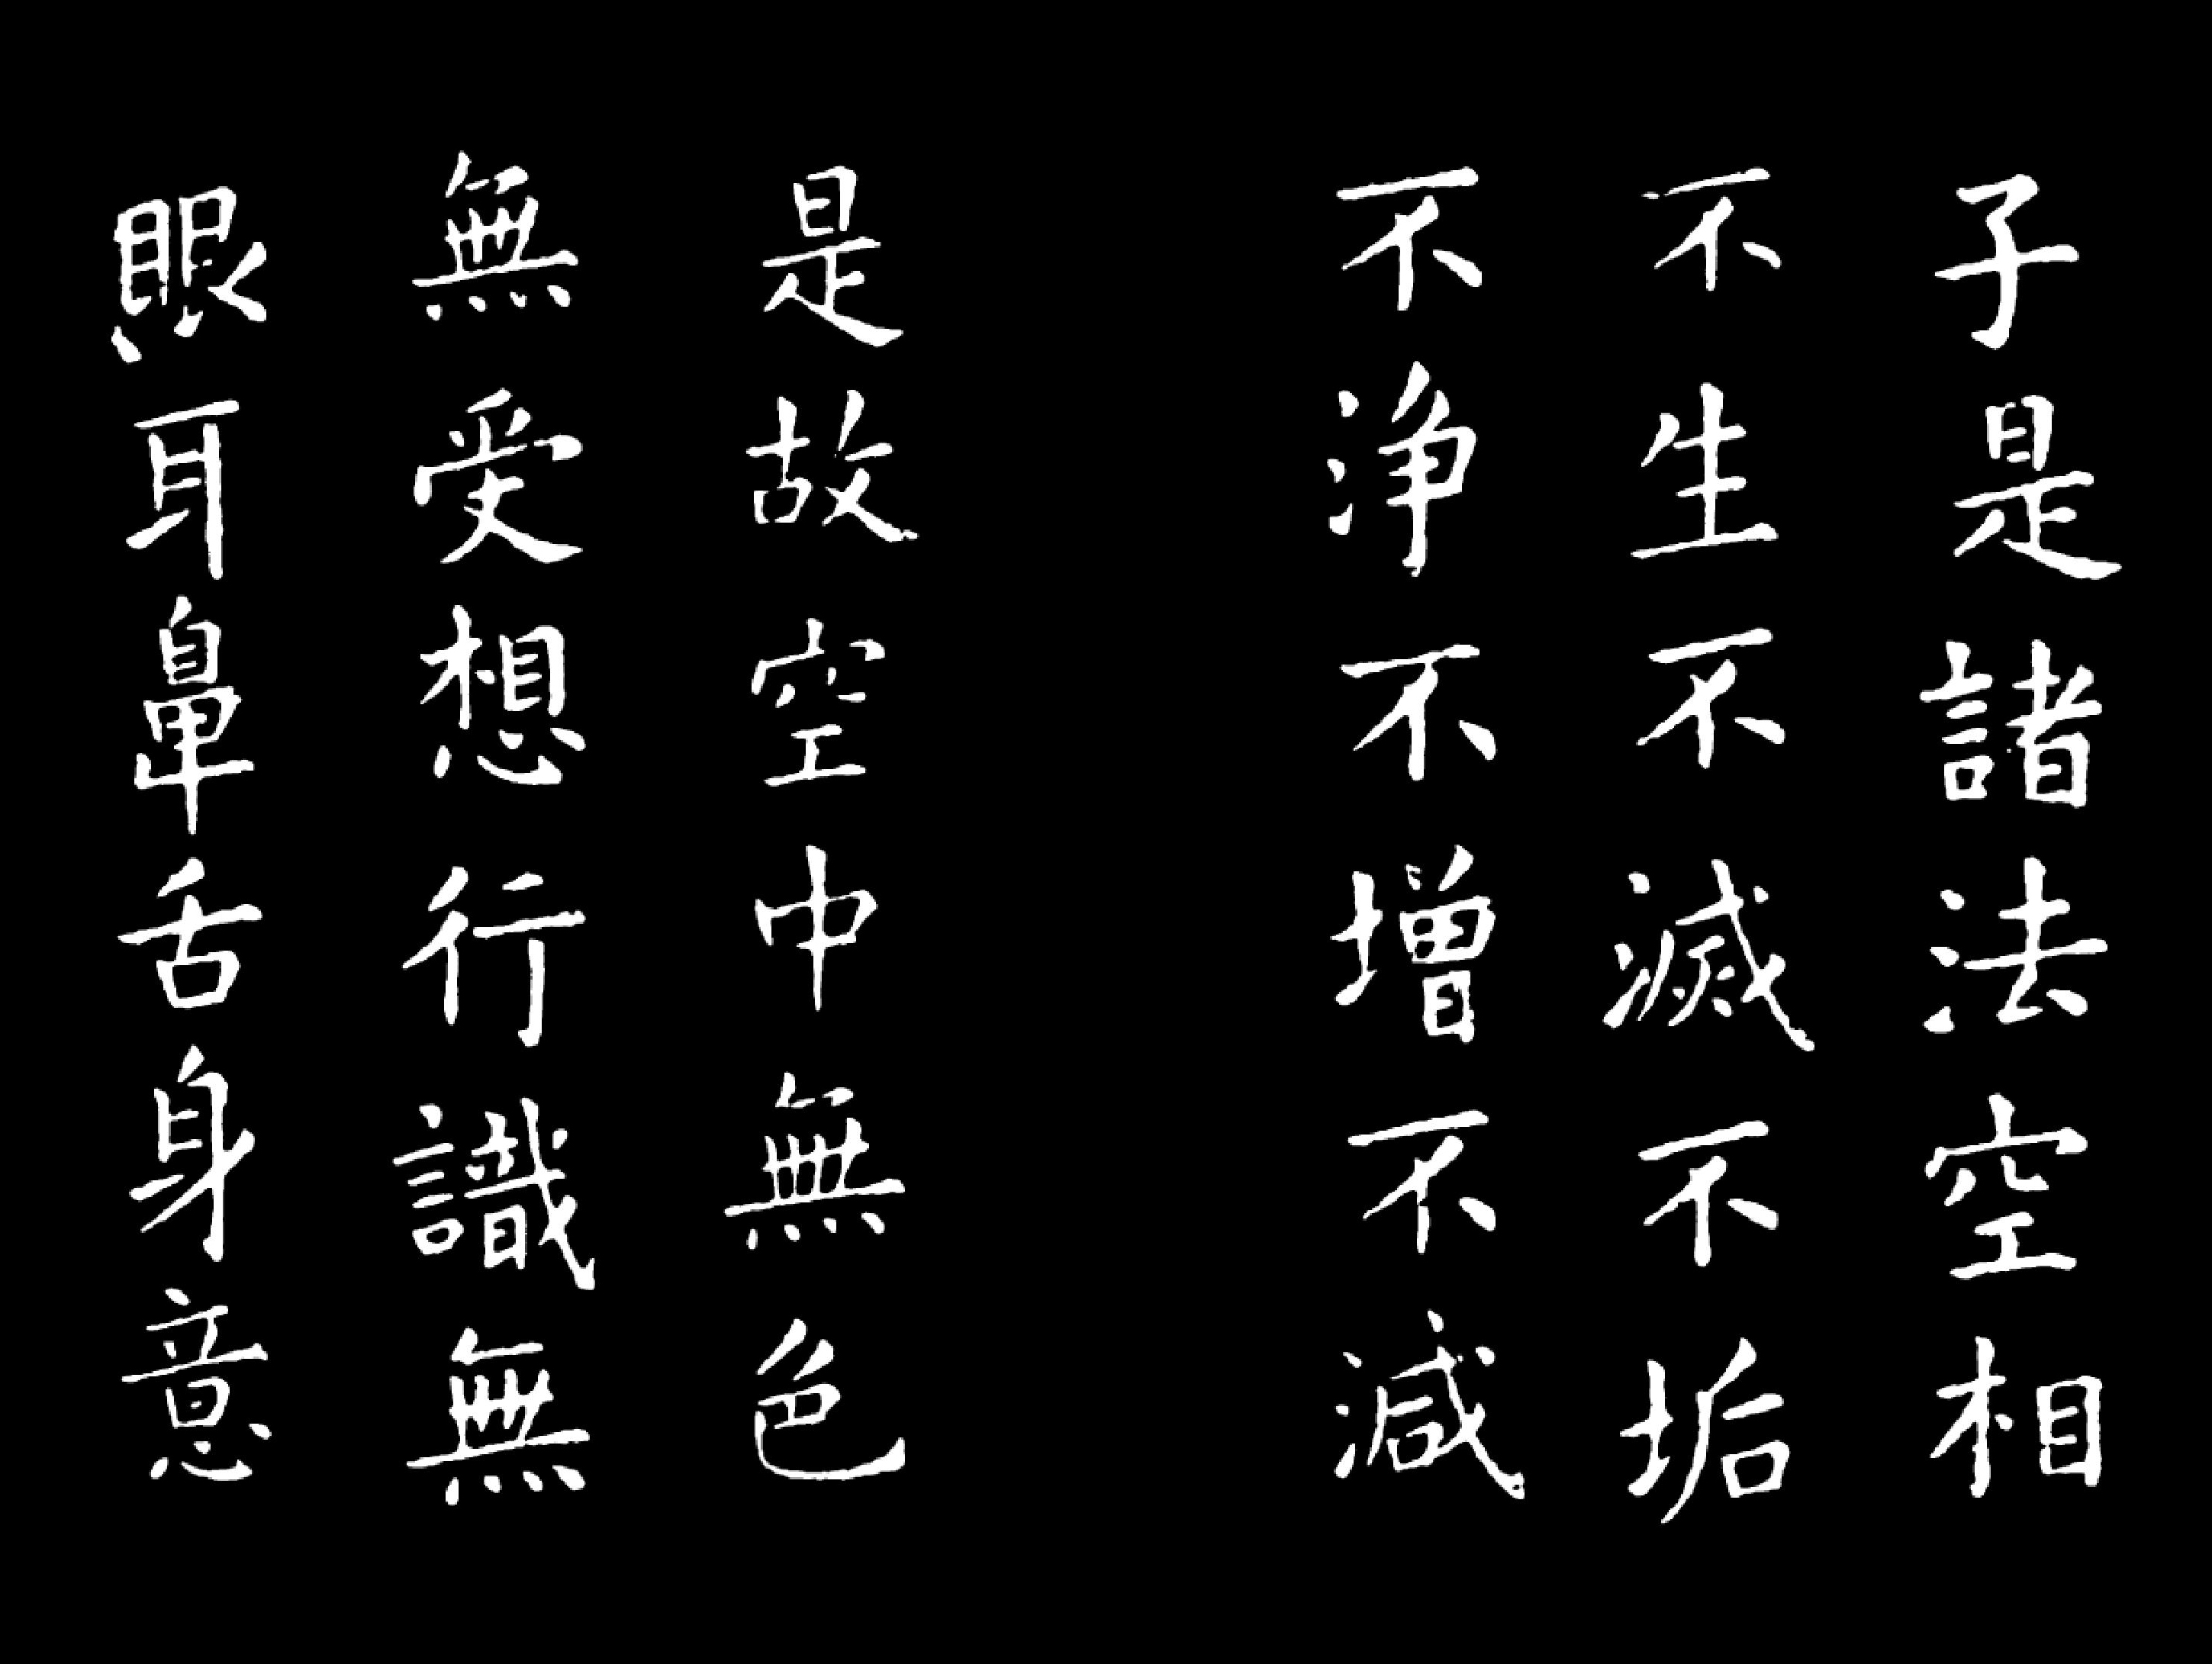 子是諸法空相
不生不滅不垢
不淨不增不減
是故空中無色
無受想行識無
眼耳鼻舌身意